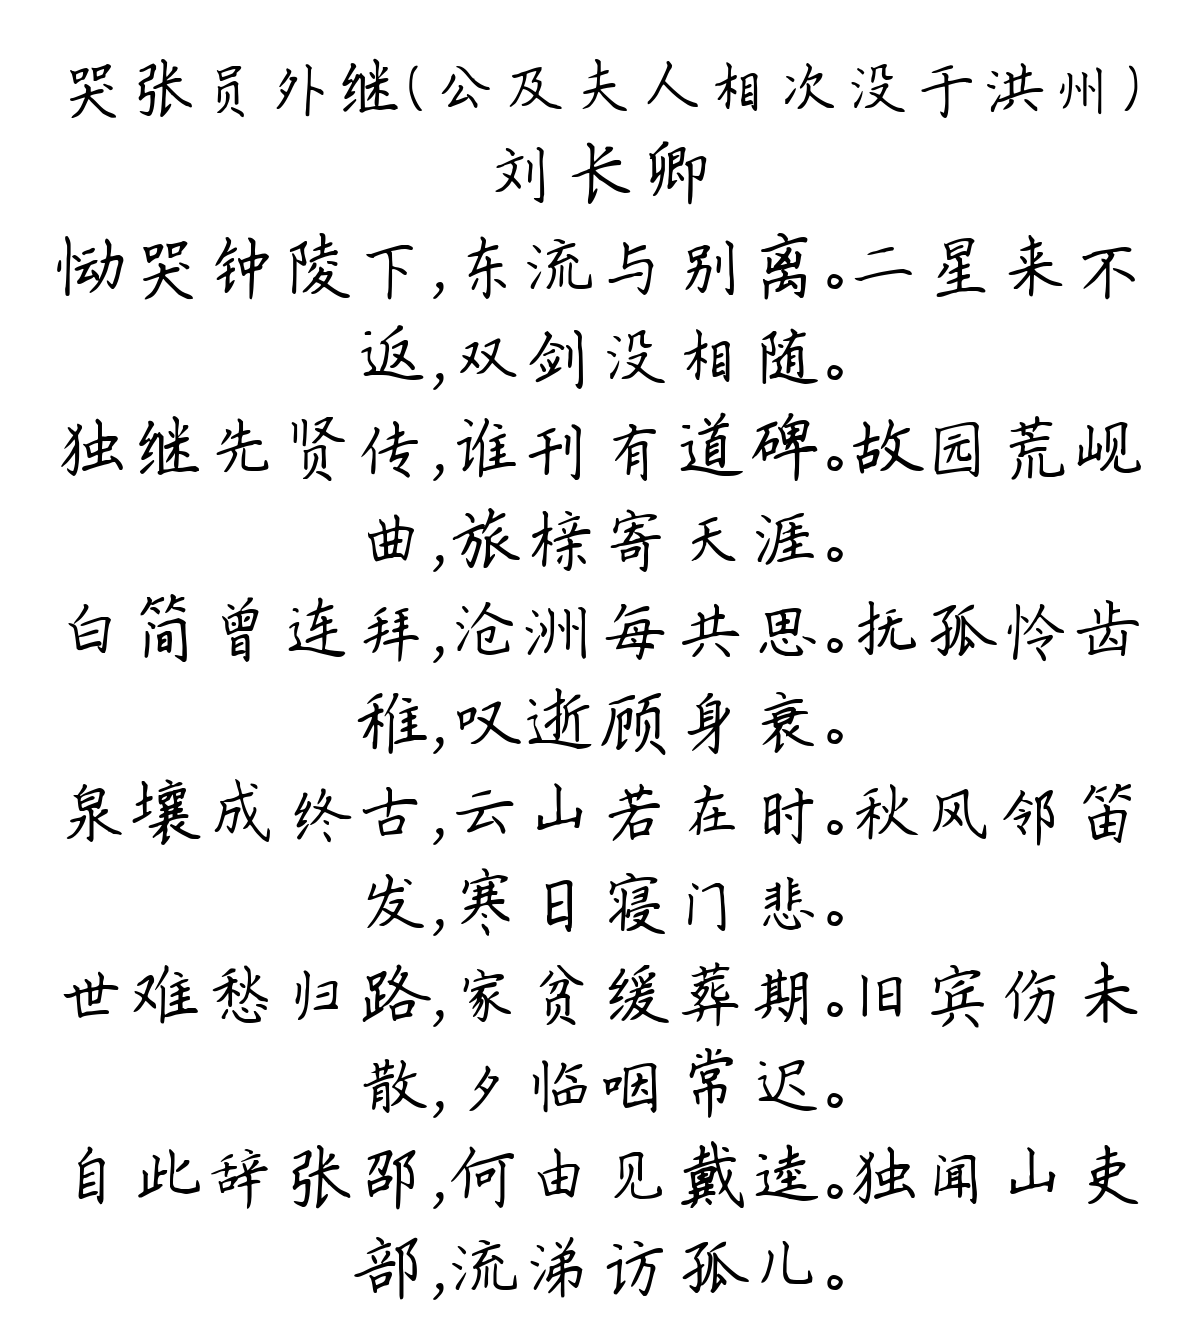 哭张员外继(公及夫人相次没于洪州)
刘长卿
恸哭钟陵下,东流与别离。二星来不
返,双剑没相随。
独继先贤传,谁刊有道碑。故园荒岘
曲,旅榇寄天涯。
白简曾连拜,沧洲每共思。抚孤怜齿
稚,叹逝顾身衰。
泉壤成终古,云山若在时。秋风邻笛
发,寒日寝门悲。
世难愁归路,家贫缓葬期。旧宾伤未
散,夕临咽常迟。
自此辞张邵,何由见戴逵。独闻山吏
部,流涕访孤儿。